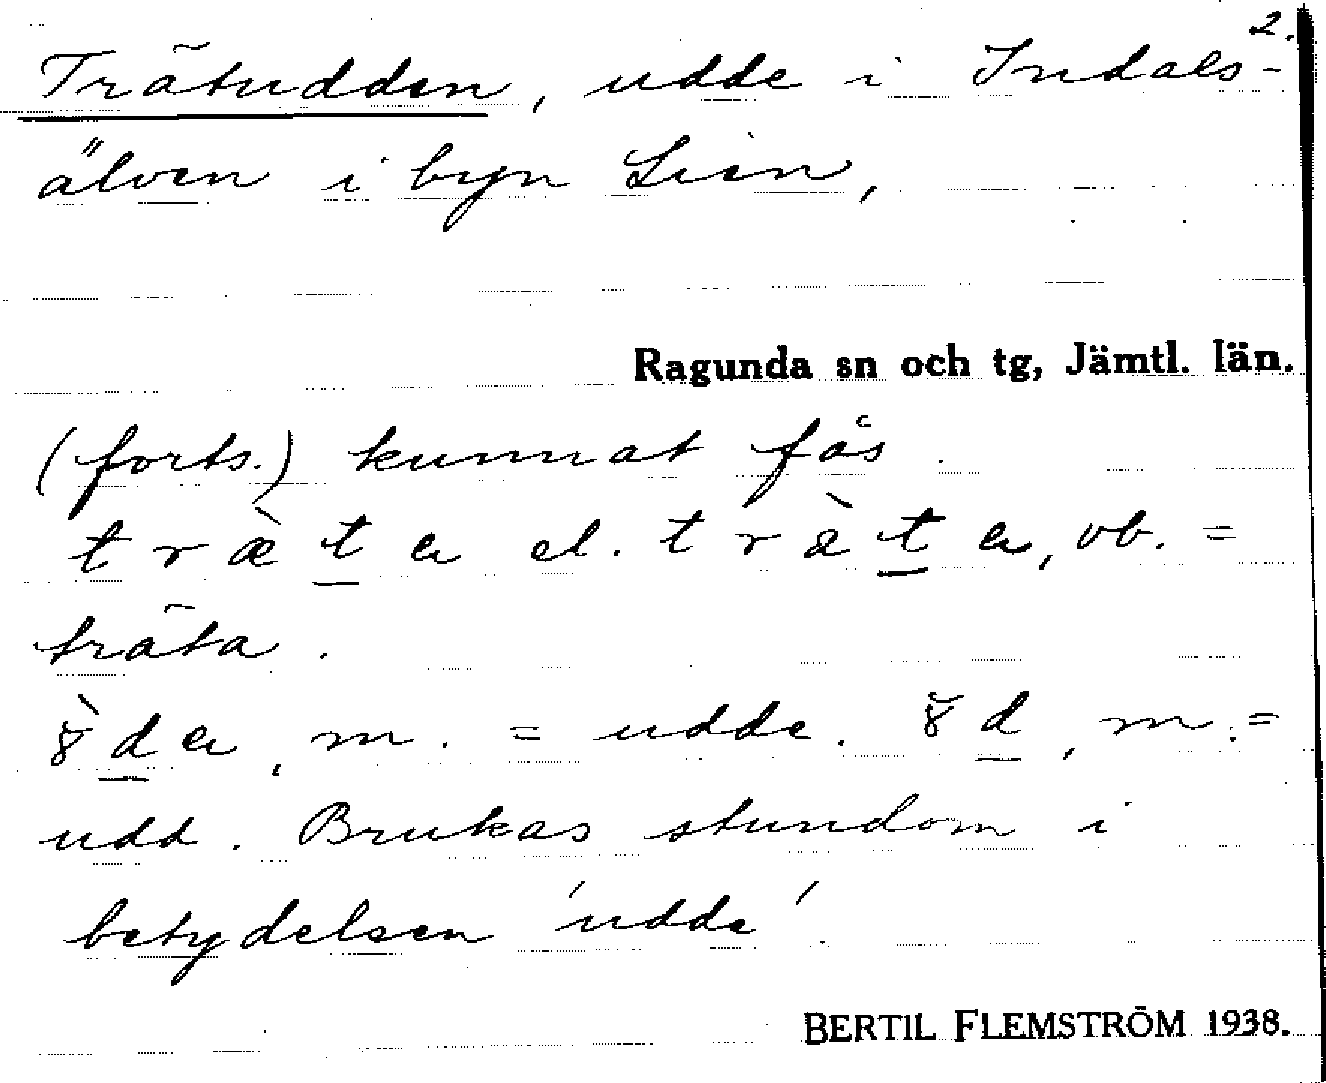 2.
Trätudden, udde i Indals-
älven i byn Lien,
Ragunda sn och tg, Jämtl. län.
(forts.) kunnat fås.
træ̀ta el. trä̀ta, vb. =
träta.
8̀da, m. = udde. 8̆d, m. =
udd. Brukas stundom i
betydelsen 'udde'.
BERTIL FLEMSTRÖM 1938.